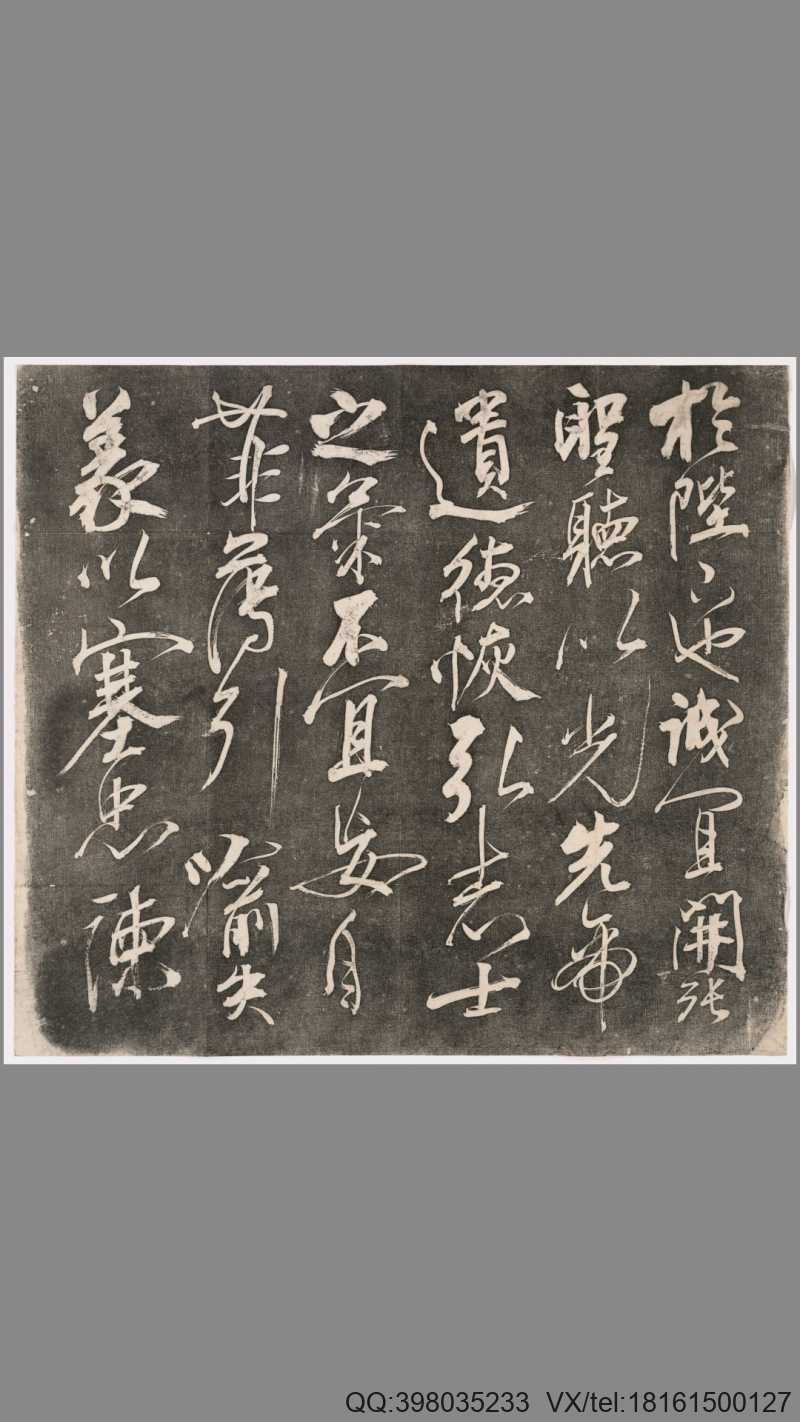 於陛下也誠宜開張
聖聽以光先帝
遺德恢弘志士
之氣不宜妄自
菲薄引喻失
義以塞忠諫
QQ:398035233 VX/tel:18161500127